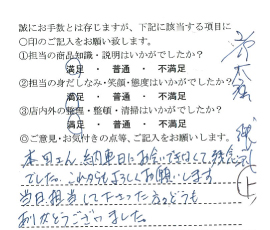 誠にお手数とは存じますが、下記に該当する項目に
〇印のご記入をお願い致します。
①担当の商品知識・説明はいかがでしたか？
満足 ・ 普通 ・ 不満足
②担当の身だしなみ・笑顔・態度はいかがでしたか？
満足 ・ 普通 ・ 不満足
③店内外の整理・整頓・清掃はいかがでしたか？
満足 ・ 普通 ・ 不満足
◎ご意見・お気付きの点等、ご記入をお願いします。
本田さん 納車日にお会いできなくて残念
でした。これからもよろしくお願いします
当日担当して下さった方。どうも
ありがとうございました。